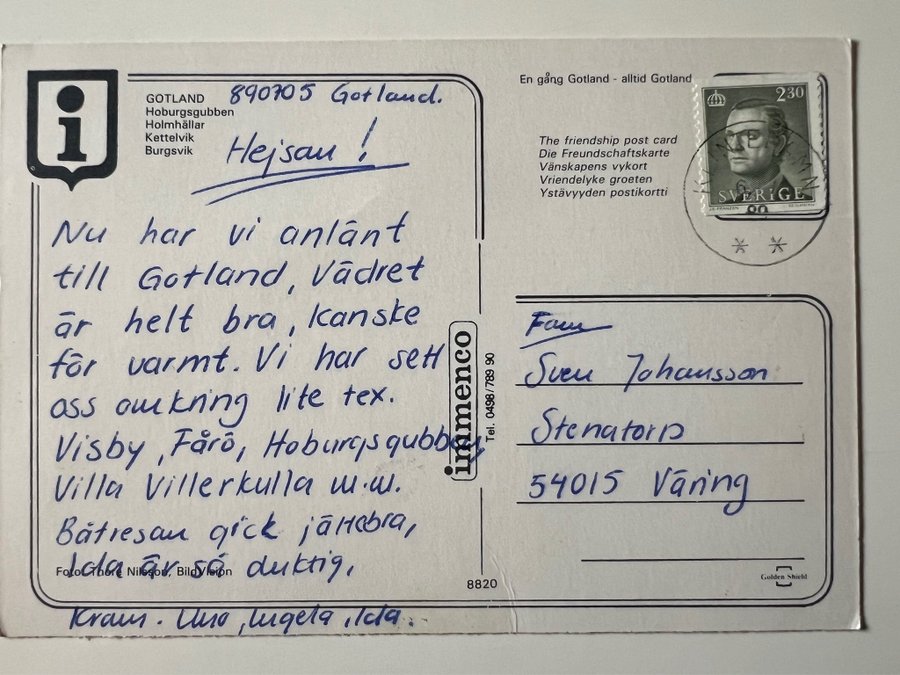 GOTLAND
Hoburgsgubben
Holmhällar
Kettelvik
Burgsvik
890705 Gotland.
Hejsan!
Nu har vi anlänt
till Gotland, Vädret
är helt bra, kanske
för varmt. Vi har sett
oss omkring lite tex.
Visby, Fårö, Hoburgsgubben,
Villa Villerkulla m.m.
Båtresan gick jättebra,
Ida är så duktig,
Foto: Thore Nilsson, BildVision
Kram. Uno, Ingela, Ida.
immenco
Tel. 0498/789 90
8820
En gång Gotland - alltid Gotland
The friendship post card
Die Freundschaftskarte
Vänskapens vykort
Vriendelyke groeten
Ystävyyden postikortti
2.30
SVERIGE
Fam
Sven Johansson
Stenatorp
54015 Väring
Golden Shield